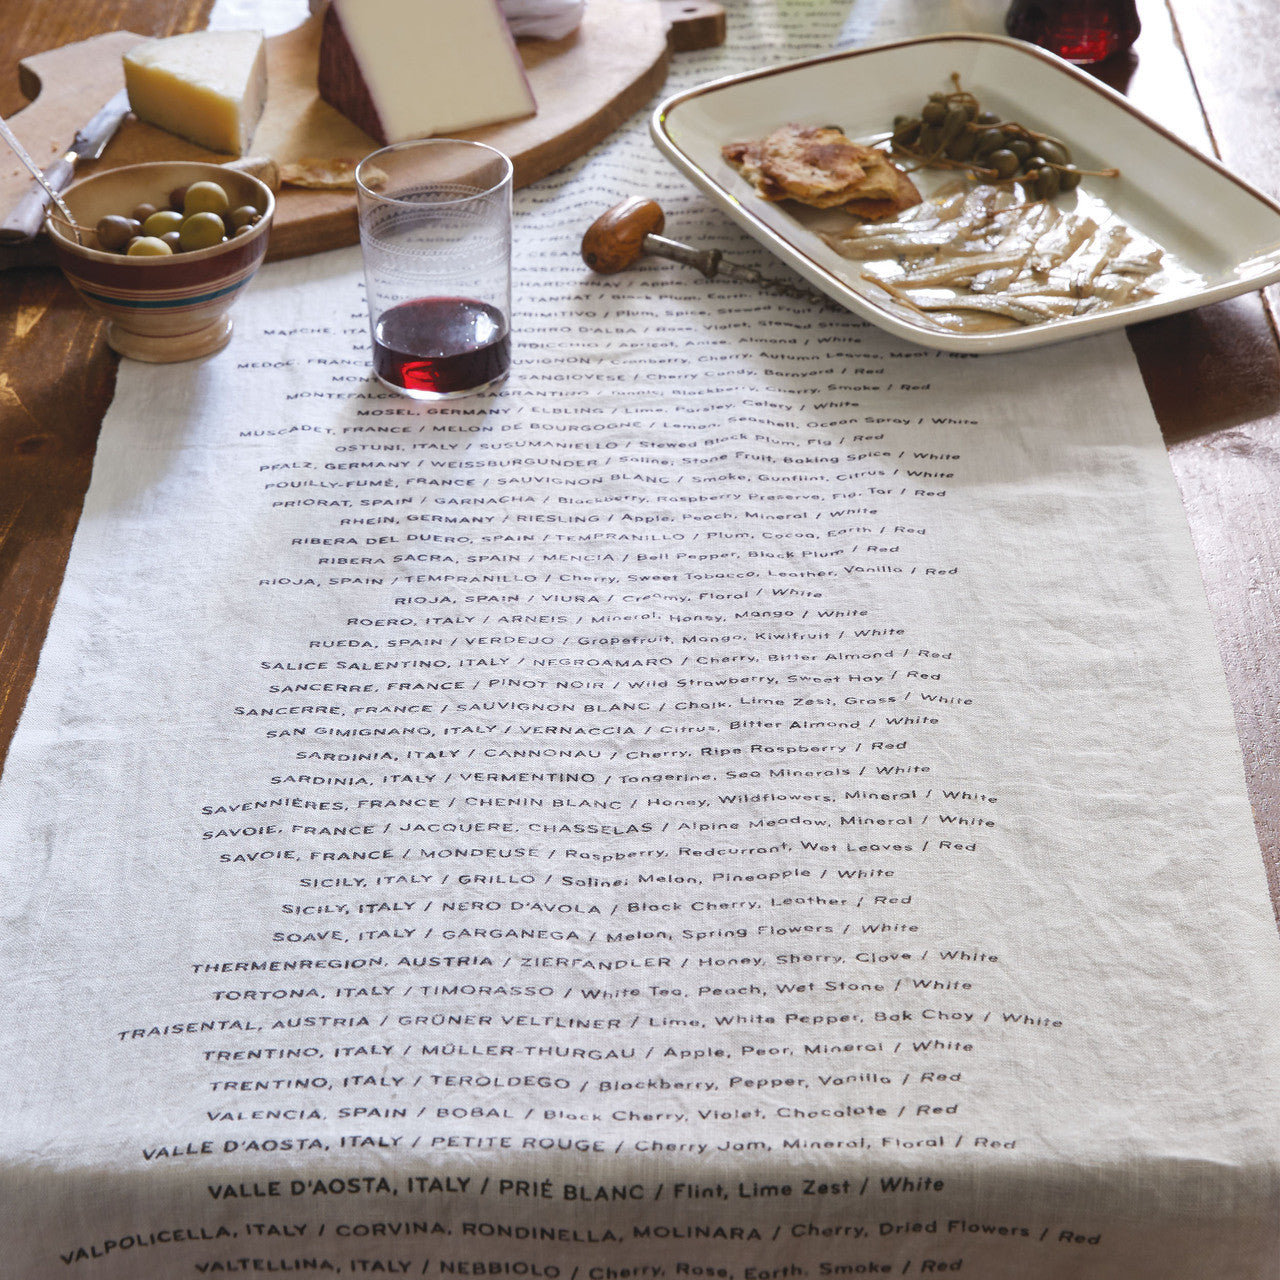 CHARDONNAY / Apple,
TANNAT / Black Plum, Earth,
PRIMITIVO / Plum, Spice, Stewed Fruit /
MARCHE, ITA MORRO D'ALBA / Rose, Violet, Stewed
RDICCHIO / Apricot, Anise, Almond / White
MEDOC, FRANCE UVIGNON / Cranberry, Cherry, Autumn Leaves, Meat / Red
MONT SANGIOVESE / Cherry Candy, Barnyard / Red
MONTEFALCO, SAGRANTINO / Tannic, Blackberry, Cherry, Smoke / Red
MOSEL, GERMANY / ELBLING / Lime, Parsley, Celery / White
MUSCADET, FRANCE / MELON DE BOURGOGNE / Lemon, Seashell, Ocean Spray / White
OSTUNI, ITALY / SUSUMANIELLO / Stewed Black Plum, Fig / Red
PFALZ, GERMANY / WEISSBURGUNDER / Saline, Stone Fruit, Baking Spice / White
POUILLY-FUMÉ, FRANCE / SAUVIGNON BLANC / Smoke, Gunflint, Citrus / White
PRIORAT, SPAIN / GARNACHA / Blackberry, Raspberry Preserve, Fig, Tar / Red
RHEIN, GERMANY / RIESLING / Apple, Peach, Mineral / White
RIBERA DEL DUERO, SPAIN / TEMPRANILLO / Plum, Cocoa, Earth / Red
RIBERA SACRA, SPAIN / MENCIA / Bell Pepper, Black Plum / Red
RIOJA, SPAIN / TEMPRANILLO / Cherry, Sweet Tobacco, Leather, Vanilla / Red
RIOJA, SPAIN / VIURA / Creamy, Floral / White
ROERO, ITALY / ARNEIS / Mineral, Honey, Mango / White
RUEDA, SPAIN / VERDEJO / Grapefruit, Mango, Kiwifruit / White
SALICE SALENTINO, ITALY / NEGROAMARO / Cherry, Bitter Almond / Red
SANCERRE, FRANCE / PINOT NOIR / Wild Strawberry, Sweet Hay / Red
SANCERRE, FRANCE / SAUVIGNON BLANC / Chalk, Lime Zest, Grass / White
SAN GIMIGNANO, ITALY / VERNACCIA / Citrus, Bitter Almond / White
SARDINIA, ITALY / CANNONAU / Cherry, Ripe Raspberry / Red
SARDINIA, ITALY / VERMENTINO / Tangerine, Sea Minerals / White
SAVENNIÈRES, FRANCE / CHENIN BLANC / Honey, Wildflowers, Mineral / White
SAVOIE, FRANCE / JACQUERE, CHASSELAS / Alpine Meadow, Mineral / White
SAVOIE, FRANCE / MONDEUSE / Raspberry, Redcurrant, Wet Leaves / Red
SICILY, ITALY / GRILLO / Saline, Melon, Pineapple / White
SICILY, ITALY / NERO D'AVOLA / Black Cherry, Leather / Red
SOAVE, ITALY / GARGANEGA / Melon, Spring Flowers / White
THERMENREGION, AUSTRIA / ZIERFANDLER / Honey, Sherry, Clove / White
TORTONA, ITALY / TIMORASSO / White Tea, Peach, Wet Stone / White
TRAISENTAL, AUSTRIA / GRÜNER VELTLINER / Lime, White Pepper, Bok Choy / White
TRENTINO, ITALY / MÜLLER-THURGAU / Apple, Pear, Mineral / White
TRENTINO, ITALY / TEROLDEGO / Blackberry, Pepper, Vanilla / Red
VALENCIA, SPAIN / BOBAL / Black Cherry, Violet, Chocolate / Red
VALLE D'AOSTA, ITALY / PETITE ROUGE / Cherry Jam, Mineral, Floral / Red
VALLE D'AOSTA, ITALY / PRIÉ BLANC / Flint, Lime Zest / White
VALPOLICELLA, ITALY / CORVINA, RONDINELLA, MOLINARA / Cherry, Dried Flowers / Red
VALTELLINA, ITALY / NEBBIOLO / Cherry, Rose, Earth, Smoke / Red